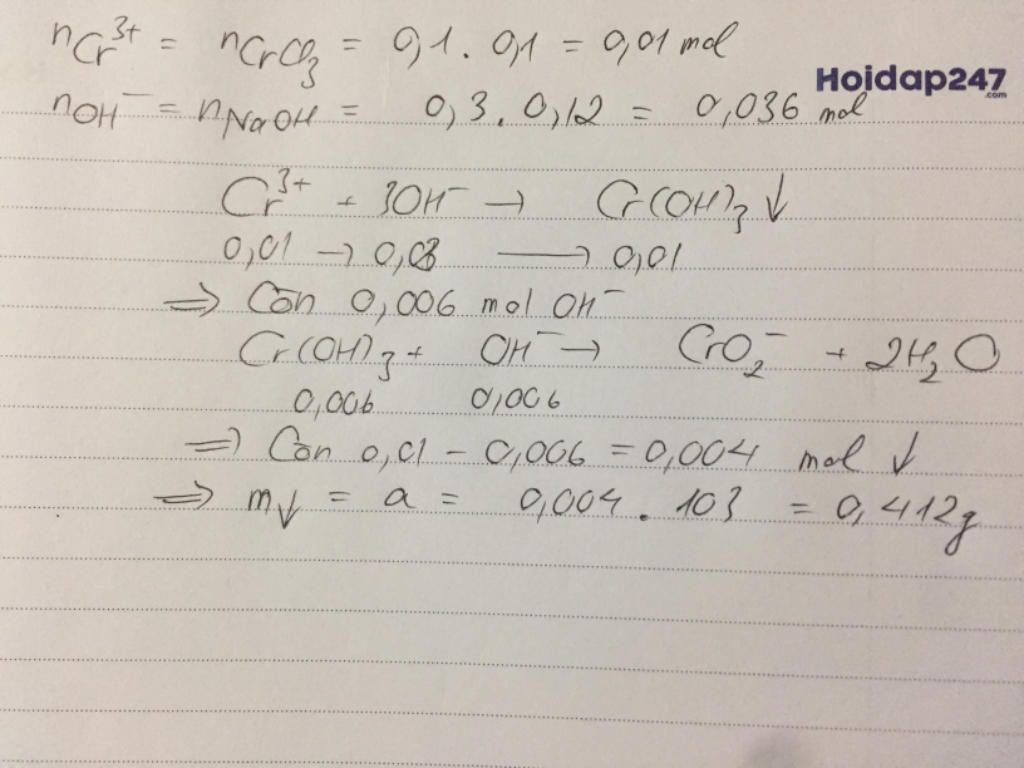 nCr³⁺ = nCrCl₃ = 0,1 . 0,1 = 0,01 mol
Hoidap247
.com
nOH⁻ = nNaOH = 0,3 . 0,12 = 0,036 mol
Cr³⁺ + 3OH⁻ → Cr(OH)₃↓
0,01 → 0,03 → 0,01
⇒ Còn 0,006 mol OH⁻
Cr(OH)₃ + OH⁻ → CrO₂⁻ + 2H₂O
0,006 0,006
⇒ Còn 0,01 - 0,006 = 0,004 mol ↓
⇒ m↓ = a = 0,004 . 103 = 0,412g